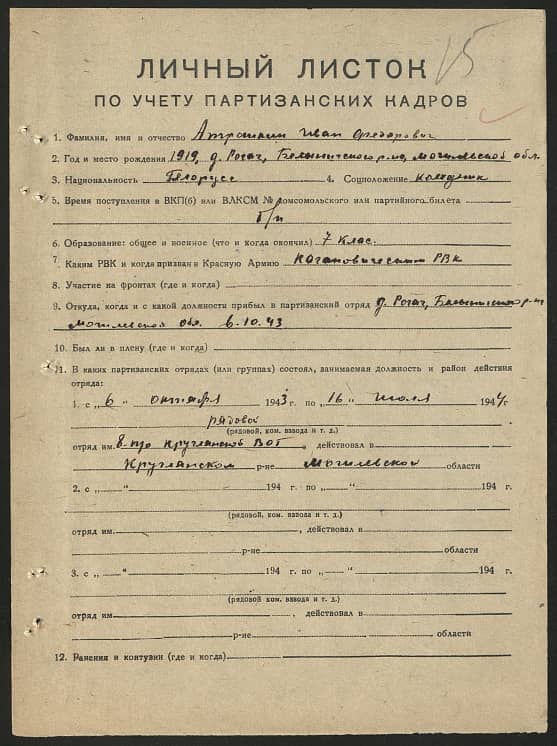 15
ЛИЧНЫЙ ЛИСТОК
ПО УЧЕТУ ПАРТИЗАНСКИХ КАДРОВ
1. Фамилия, имя и отчество Иван Федорович
2. Год и место рождения 1919, д. Рогач, Белыничского р-на, Могилевской обл.
3. Национальность Белорусс 4. Соцположение колхозник
5. Время поступления в ВКП(б) или ВЛКСМ № комсомольского или партийного билета
б/п
6. Образование: общее и военное (что и когда окончил) 7 клас.
7. Каким РВК и когда призван в Красную Армию Кагановическим РВК
8. Участие на фронтах (где и когда)
9. Откуда, когда и с какой должности прибыл в партизанский отряд д. Рогач, Белыничского р-на
Могилевской обл. 6.10.43
10. Был ли в плену (где и когда)
11. В каких партизанских отрядах (или группах) состоял, занимаемая должность и район действия
отряда:
1. с „6“ октября 1943 г. по „16“ июля 1944 г.
рядовой
(рядовой, ком. взвода и т. д.)
отряд им. 8-го Круглянской ВОГ, действовал в
Круглянском р-не Могилевской области
2. с „ “ 194 г. по „ “ 194 г.
(рядовой, ком. взвода и т. д.)
отряд им. , действовал в
р-не области
3. с „ “ 194 г. по „ “ 194 г.
(рядовой, ком. взвода и т. д.)
отряд им. , действовал в
р-не области
12. Ранения и контузии (где и когда)